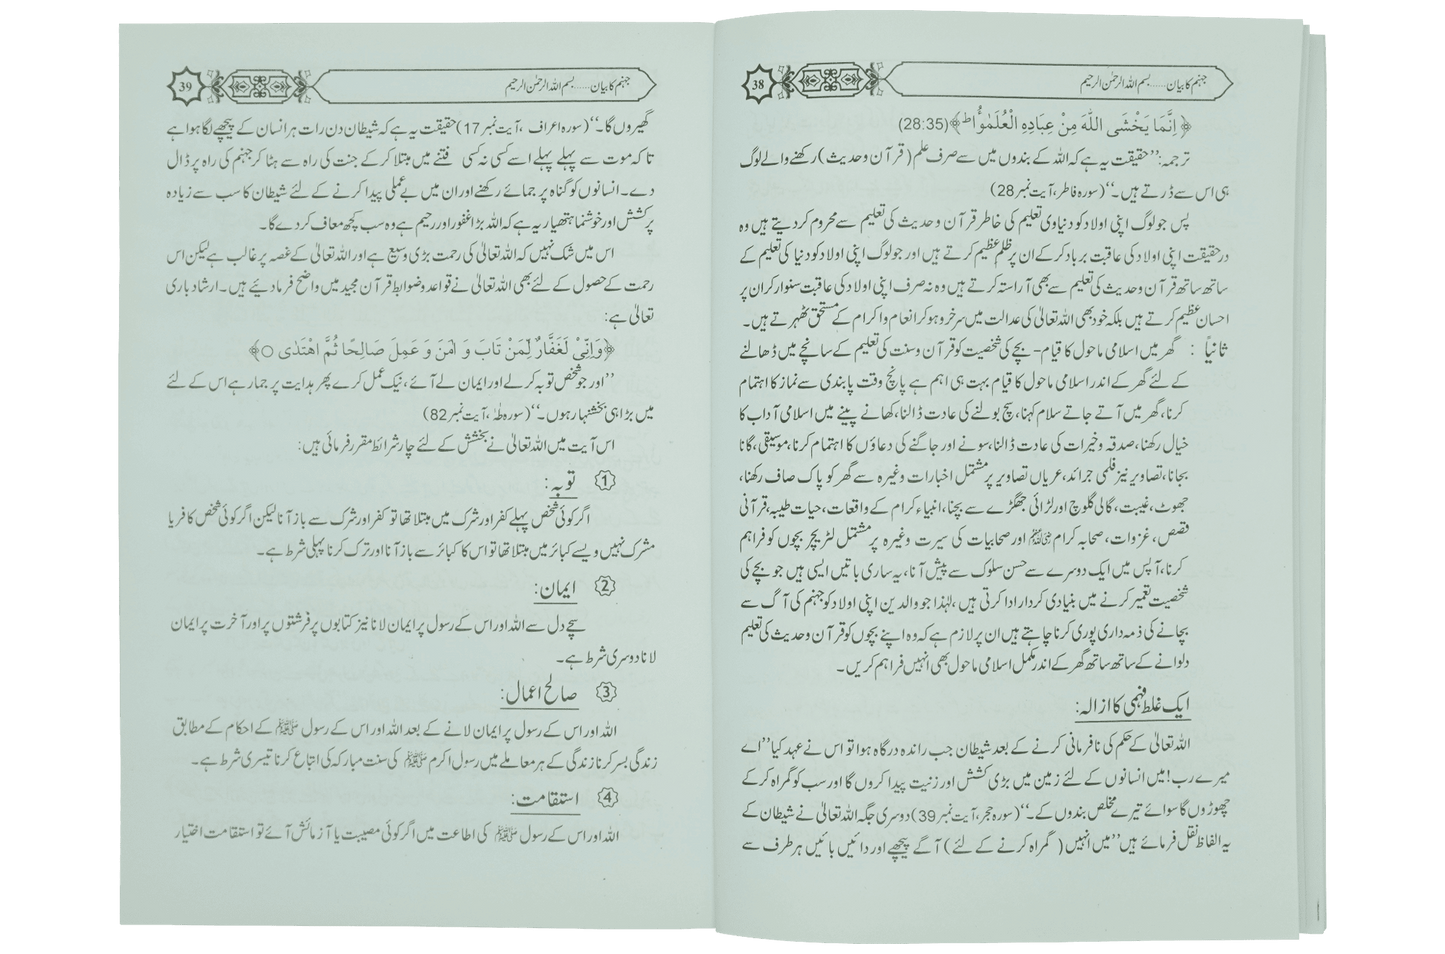 جہنم کا بیان......بسم اللہ الرحمٰن الرحیم
38
﴿ اِنَّمَا يَخْشَى اللّٰهَ مِنْ عِبَادِهِ الْعُلَمٰٓؤُا ؕ ﴾(28:35)
ترجمہ:’’حقیقت یہ ہے کہ اللہ کے بندوں میں سے صرف علم (قرآن وحدیث) رکھنے والے لوگ
ہی اس سے ڈرتے ہیں۔‘‘(سورہ فاطر،آیت نمبر28)
پس جو لوگ اپنی اولاد کو دنیاوی تعلیم کی خاطر قرآن وحدیث کی تعلیم سے محروم کر دیتے ہیں وہ
درحقیقت اپنی اولاد کی عاقبت برباد کر کے ان پر ظلم عظیم کرتے ہیں اور جو لوگ اپنی اولاد کو دنیا کی تعلیم کے
ساتھ ساتھ قرآن وحدیث کی تعلیم سے بھی آراستہ کرتے ہیں وہ نہ صرف اپنی اولاد کی عاقبت سنوار کر ان پر
احسان عظیم کرتے ہیں بلکہ خود بھی اللہ تعالیٰ کی عدالت میں سرخرو ہو کر انعام و اکرام کے مستحق ٹھہرتے ہیں۔
ثانیاً : گھر میں اسلامی ماحول کا قیام- بچے کی شخصیت کو قرآن وسنت کی تعلیم کے سانچے میں ڈھالنے
کے لئے گھر کے اندر اسلامی ماحول کا قیام بہت ہی اہم ہے پانچ وقت پابندی سے نماز کا اہتمام
کرنا،گھر میں آتے جاتے سلام کہنا،سچ بولنے کی عادت ڈالنا،کھانے پینے میں اسلامی آداب کا
خیال رکھنا،صدقہ وخیرات کی عادت ڈالنا،سونے اور جاگنے کی دعاؤں کا اہتمام کرنا،موسیقی،گانا
بجانا،تصاویر نیز فلمی جرائد،عریاں تصاویر پر مشتمل اخبارات وغیرہ سے گھر کو پاک صاف رکھنا،
جھوٹ،غیبت،گالی گلوچ اور لڑائی جھگڑے سے بچنا،انبیاء کرام کے واقعات،حیات طیبہ،قرآنی
قصص،غزوات،صحابہ کرام ﷺ اور صحابیات کی سیرت وغیرہ پر مشتمل لٹریچر بچوں کو فراہم
کرنا،آپس میں ایک دوسرے سے حسن سلوک سے پیش آنا،یہ ساری باتیں ایسی ہیں جو بچے کی
شخصیت تعمیر کرنے میں بنیادی کردار ادا کرتی ہیں،لہٰذا جو والدین اپنی اولاد کو جہنم کی آگ سے
بچانے کی ذمہ داری پوری کرنا چاہتے ہیں ان پر لازم ہے کہ وہ اپنے بچوں کو قرآن وحدیث کی تعلیم
دلوانے کے ساتھ ساتھ گھر کے اندر مکمل اسلامی ماحول بھی انہیں فراہم کریں۔
ایک غلط فہمی کا ازالہ:
اللہ تعالیٰ کے حکم کی نافرمانی کرنے کے بعد شیطان جب راندہ درگاہ ہوا تو اس نے عہد کیا’’اے
میرے رب!میں انسانوں کے لئے زمین میں بڑی کشش اور زینت پیدا کروں گا اور سب کو گمراہ کر کے
چھوڑوں گا سوائے تیرے مخلص بندوں کے۔‘‘(سورہ حجر،آیت نمبر39)دوسری جگہ اللہ تعالیٰ نے شیطان کے
یہ الفاظ نقل فرمائے ہیں’’میں انہیں (گمراہ کرنے کے لئے) آگے پیچھے اور دائیں بائیں ہر طرف سے
جہنم کا بیان......بسم اللہ الرحمٰن الرحیم
39
گھیروں گا۔‘‘(سورہ اعراف،آیت نمبر17)حقیقت یہ ہے کہ شیطان دن رات ہر انسان کے پیچھے لگا ہوا ہے
تاکہ موت سے پہلے پہلے اسے کسی نہ کسی فتنے میں مبتلا کر کے جنت کی راہ سے ہٹا کر جہنم کی راہ پر ڈال
دے۔انسانوں کو گناہ پر جمائے رکھنے اور ان میں بے عملی پیدا کرنے کے لئے شیطان کا سب سے زیادہ
پرکشش اور خوشنما ہتھیار یہ ہے کہ اللہ بڑا غفور اور رحیم ہے وہ سب کچھ معاف کر دے گا۔
اس میں شک نہیں کہ اللہ تعالیٰ کی رحمت بڑی وسیع ہے اور اللہ تعالیٰ کے غصہ پر غالب ہے لیکن اس
رحمت کے حصول کے لئے بھی اللہ تعالیٰ نے قواعد وضوابط قرآن مجید میں واضح فرما دیئے ہیں۔ارشاد باری
تعالیٰ ہے:
﴿وَاِنِّیْ لَغَفَّارٌ لِّمَنْ تَابَ وَ اٰمَنَ وَ عَمِلَ صَالِحًا ثُمَّ اهْتَدٰی ○﴾
’’اور جو شخص توبہ کر لے اور ایمان لے آئے،نیک عمل کرے پھر ہدایت پر جما رہے اس کے لئے
میں بڑا ہی بخشنہار ہوں۔‘‘(سورہ طٰہٰ،آیت نمبر82)
اس آیت میں اللہ تعالیٰ نے بخشش کے لئے چار شرائط مقرر فرمائی ہیں:
1 توبہ:
اگر کوئی شخص پہلے کفر اور شرک میں مبتلا تھا تو کفر اور شرک سے باز آنا لیکن اگر کوئی شخص کافر یا
مشرک نہیں ویسے کبائر میں مبتلا تھا تو اس کا کبائر سے باز آنا اور ترک کرنا پہلی شرط ہے۔
2 ایمان:
سچے دل سے اللہ اور اس کے رسول پر ایمان لانا نیز کتابوں پر فرشتوں پر اور آخرت پر ایمان
لانا دوسری شرط ہے۔
3 صالح اعمال:
اللہ اور اس کے رسول پر ایمان لانے کے بعد اللہ اور اس کے رسول ﷺ کے احکام کے مطابق
زندگی بسر کرنا زندگی کے ہر معاملے میں رسول اکرم ﷺ کی سنت مبارکہ کی اتباع کرنا تیسری شرط ہے۔
4 استقامت:
اللہ اور اس کے رسول ﷺ کی اطاعت میں اگر کوئی مصیبت یا آزمائش آئے تو استقامت اختیار